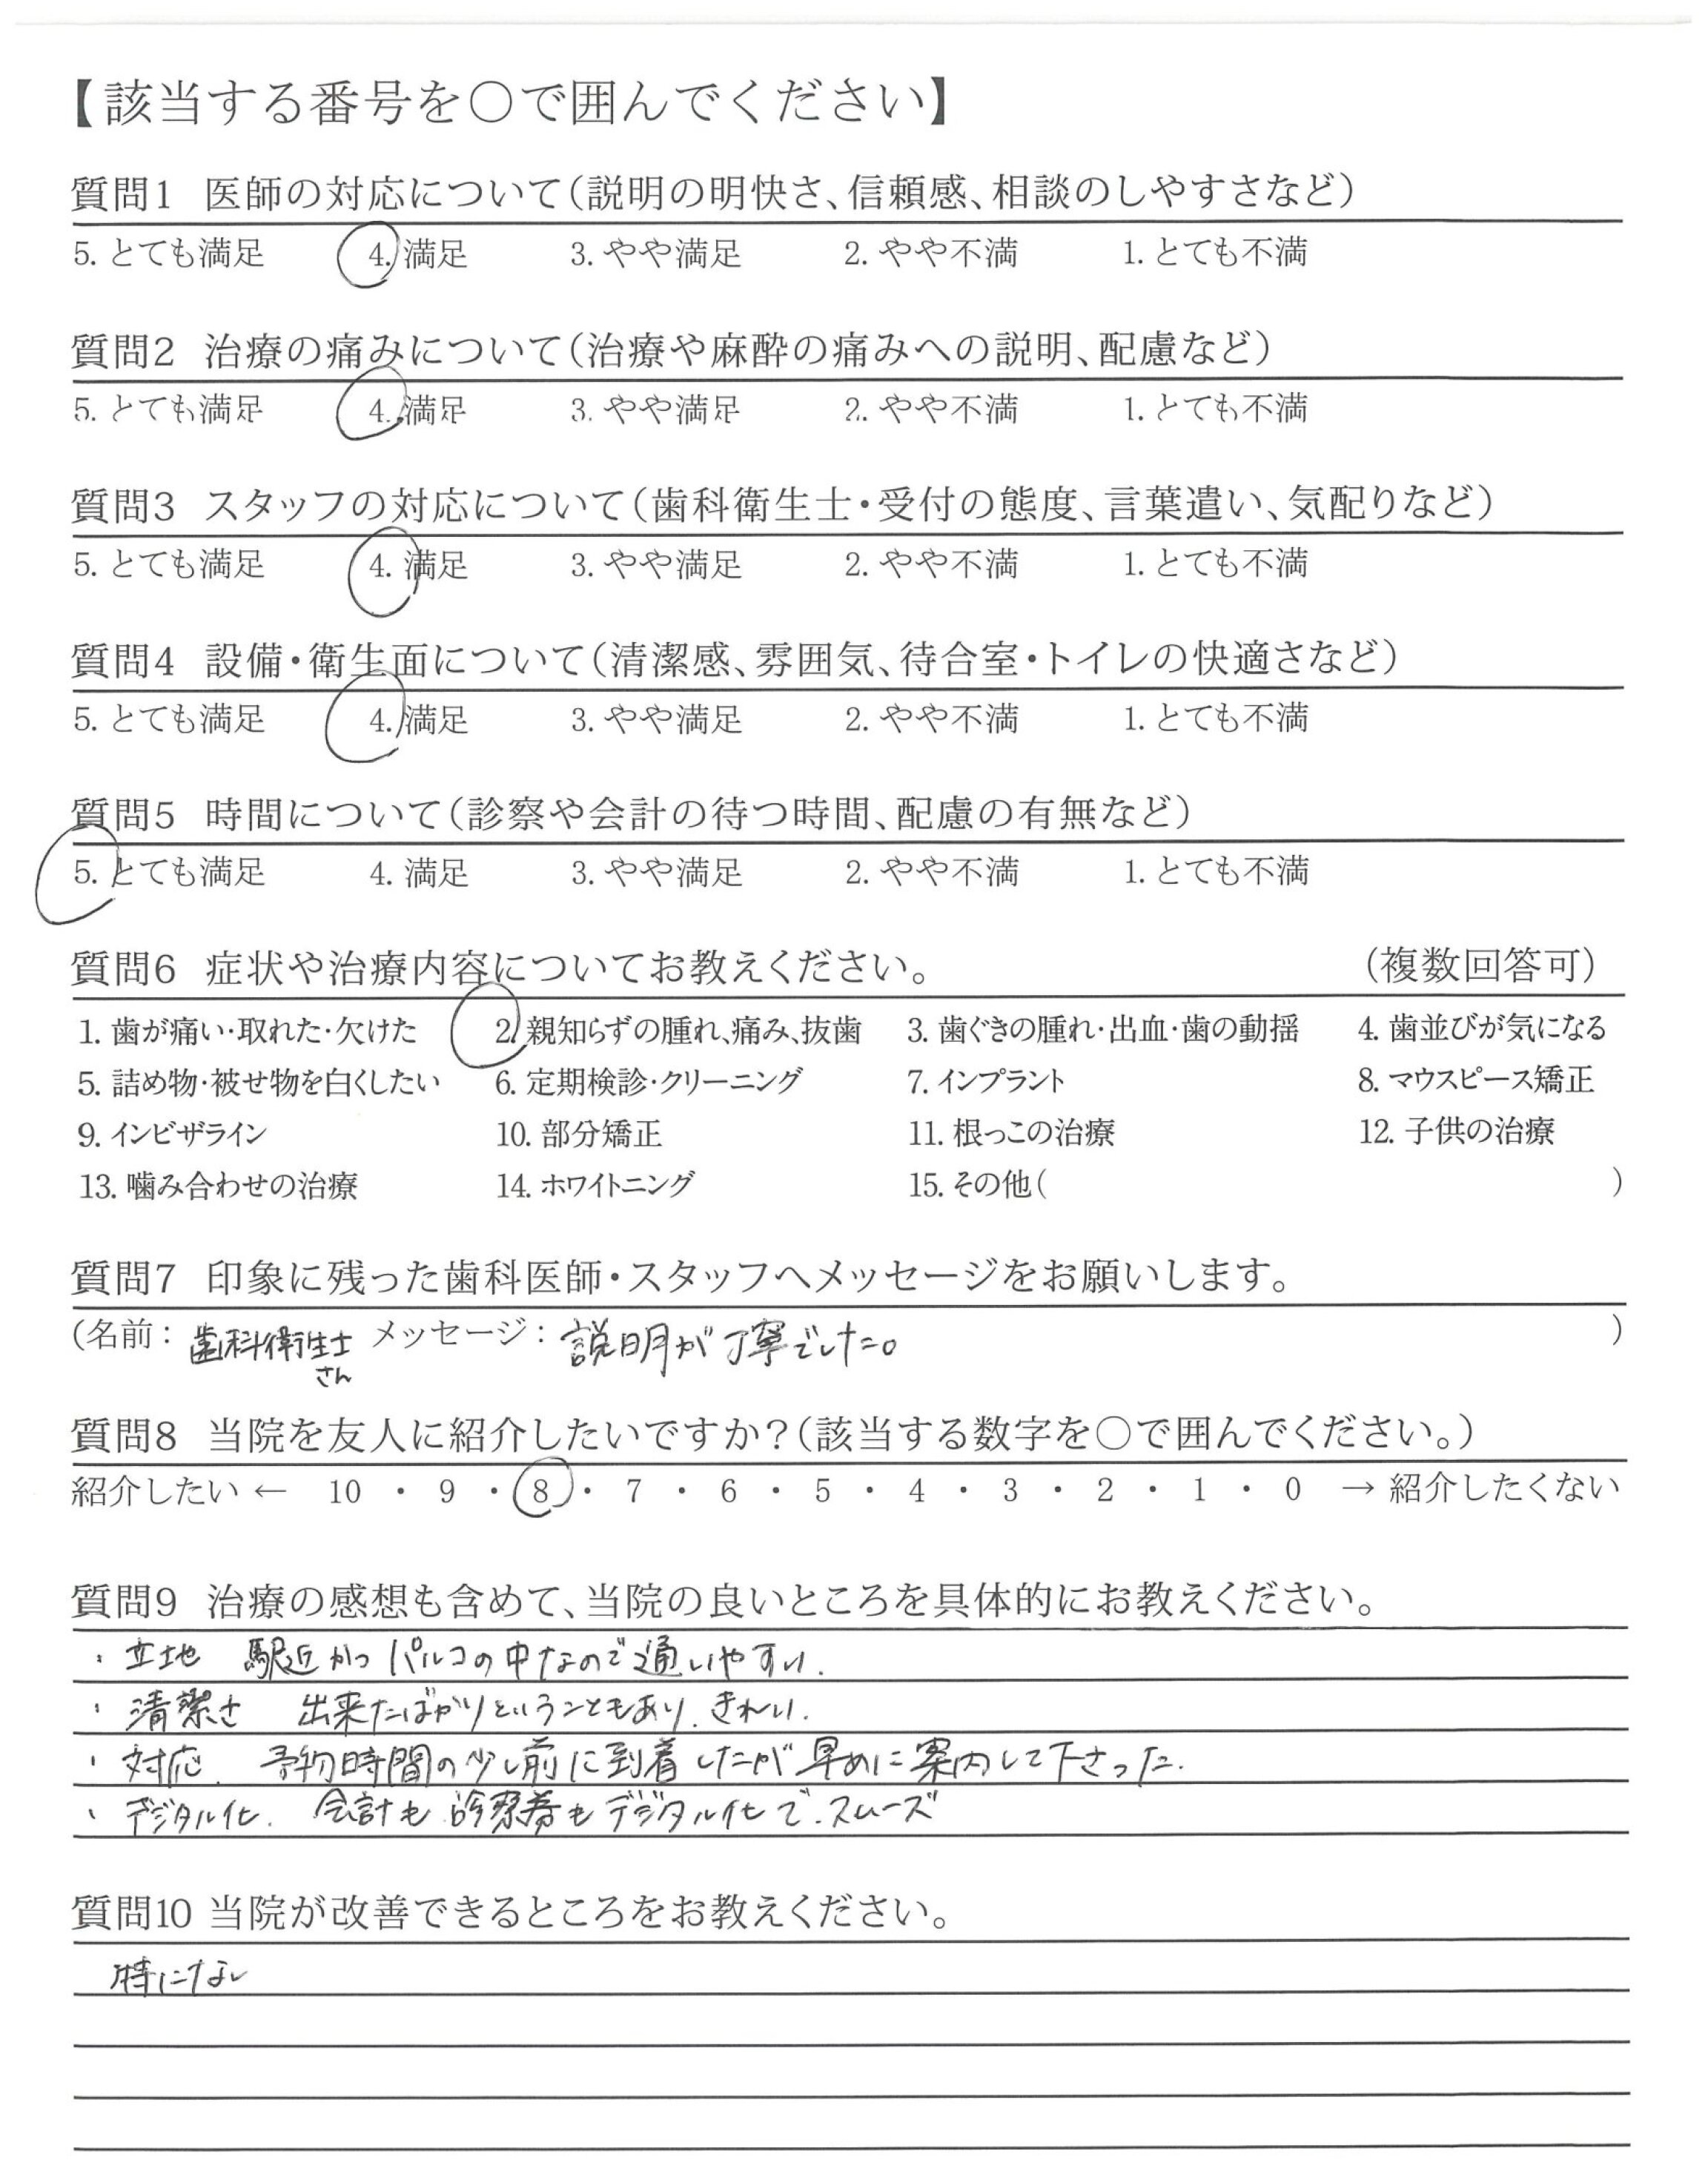 【該当する番号を○で囲んでください】
質問1 医師の対応について（説明の明快さ、信頼感、相談のしやすさなど）
5. とても満足 4. 満足 3. やや満足 2. やや不満 1. とても不満
質問2 治療の痛みについて（治療や麻酔の痛みへの説明、配慮など）
5. とても満足 4. 満足 3. やや満足 2. やや不満 1. とても不満
質問3 スタッフの対応について（歯科衛生士・受付の態度、言葉遣い、気配りなど）
5. とても満足 4. 満足 3. やや満足 2. やや不満 1. とても不満
質問4 設備・衛生面について（清潔感、雰囲気、待合室・トイレの快適さなど）
5. とても満足 4. 満足 3. やや満足 2. やや不満 1. とても不満
質問5 時間について（診察や会計の待つ時間、配慮の有無など）
5. とても満足 4. 満足 3. やや満足 2. やや不満 1. とても不満
質問6 症状や治療内容についてお教えください。 （複数回答可）
1. 歯が痛い・取れた・欠けた 2. 親知らずの腫れ、痛み、抜歯 3. 歯ぐきの腫れ・出血・歯の動揺 4. 歯並びが気になる
5. 詰め物・被せ物を白くしたい 6. 定期検診・クリーニング 7. インプラント 8. マウスピース矯正
9. インビザライン 10. 部分矯正 11. 根っこの治療 12. 子供の治療
13. 噛み合わせの治療 14. ホワイトニング 15. その他（ ）
質問7 印象に残った歯科医師・スタッフへメッセージをお願いします。
（名前： 歯科衛生士さん メッセージ： 説明が丁寧でした。 ）
質問8 当院を友人に紹介したいですか？（該当する数字を○で囲んでください。）
紹介したい ← 10 ・ 9 ・ 8 ・ 7 ・ 6 ・ 5 ・ 4 ・ 3 ・ 2 ・ 1 ・ 0 → 紹介したくない
質問9 治療の感想も含めて、当院の良いところを具体的にお教えください。
・立地 駅近かつパルコの中なので通いやすい．
・清潔さ 出来たばかりということもあり、きれい．
・対応． 予約時間の少し前に到着したが早めに案内して下さった．
・デジタル化． 会計も診察券もデジタル化で、スムーズ
質問10 当院が改善できるところをお教えください。
特になし